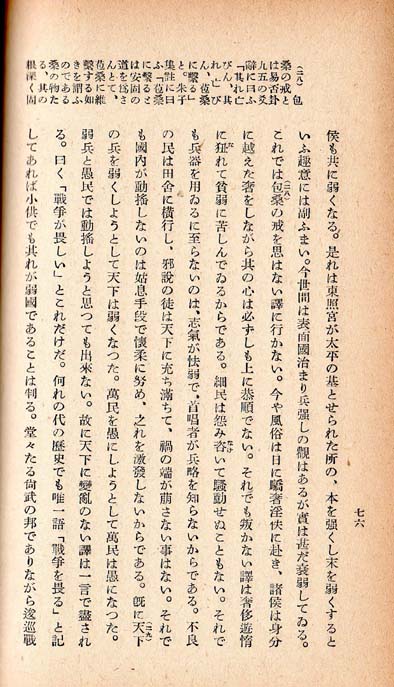 七六
(二八) 包
桑の戒と
は易否卦
九五の爻
辭に曰ふ
「其れ亡
びん、其
れ亡び
ん、苞桑
に繫る」
と。朱子
集註に曰
ふ「苞桑
に繫ると
は安固の
道を爲さ
んとて、
苞桑に維
繫する如
きを謂ふ
のである
桑の物た
る、其の
根深く固
侯も共に弱くなる。是れは東照宮が太平の基とせられた所の、本を强くし末を弱くすると
いふ趣意には副ふまい。今世間は表面國治まり兵强しの觀はあるが實は甚だ衰弱してゐる。
これでは包桑の戒(二八)を思はない譯に行かない。今や風俗は日に驕奢淫佚に赴き、諸侯は身分
に越えた奢をしながら其の心は必ずしも上に恭順でない。それでも叛かない譯は奢侈遊惰
に狃れて貧弱に苦しんでゐるからである。細民は怨み咨いて騷動せぬこともない。それで
も兵器を用ゐるに至らないのは、志氣が怯弱で、首唱者が兵略を知らないからである。不良
の民は田舍に橫行し、邪說の徒は天下に充ち滿ちて、禍の端が萠さない事はない。それで
も國內が動搖しないのは姑息手段で懷柔に努め、之れを激發しないからである。旣に天下(二九)
の兵を弱くしようとして天下は弱くなつた。萬民を愚にしようとして萬民は愚になつた。
弱兵と愚民では動搖しようと思つても出來ない。故に天下に變亂のない譯は一言で盡され
る。曰く「戰爭が畏しい」とこれだけだ。何れの代の歷史でも唯一語「戰爭を畏る」と記
してあれば小供でも其れが弱國であることは判る。堂々たる尙武の邦でありながら逡巡戰